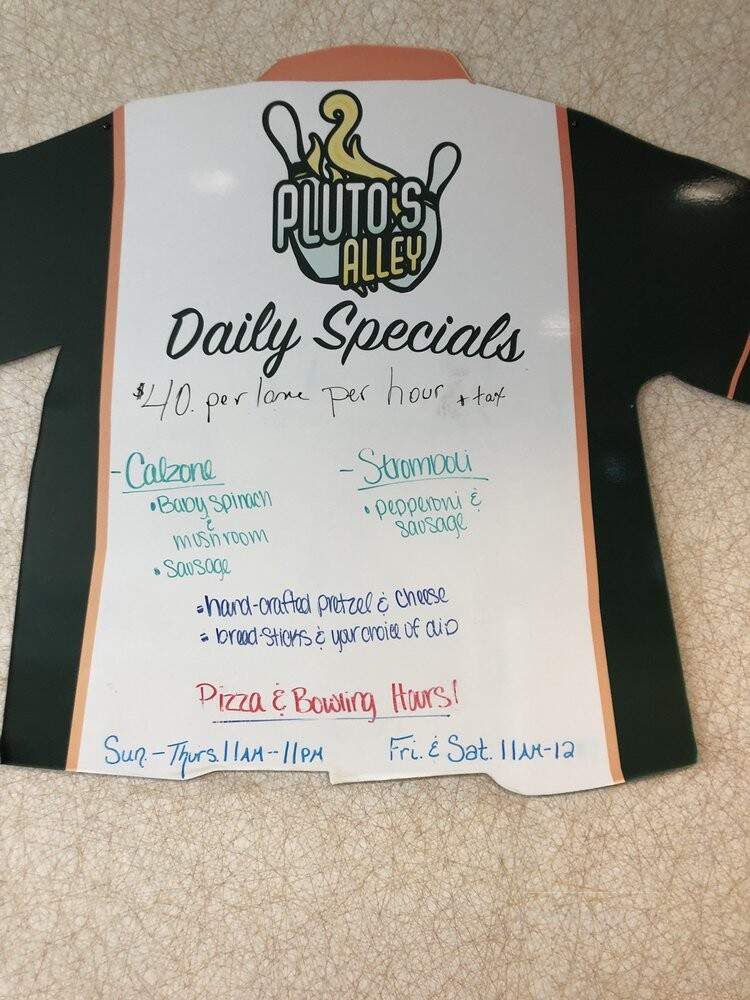 PLUTO'S
ALLEY
Daily Specials
$40. per lane per hour + tax
- Calzone
• Baby spinach
&
mushroom
• Sausage
- Stromboli
• pepperoni &
sausage
- hand-crafted pretzel & cheese
- bread sticks & your choice of dip
Pizza & Bowling Hours!
Sun. - Thurs. 11AM - 11PM
Fri. & Sat. 11AM-12